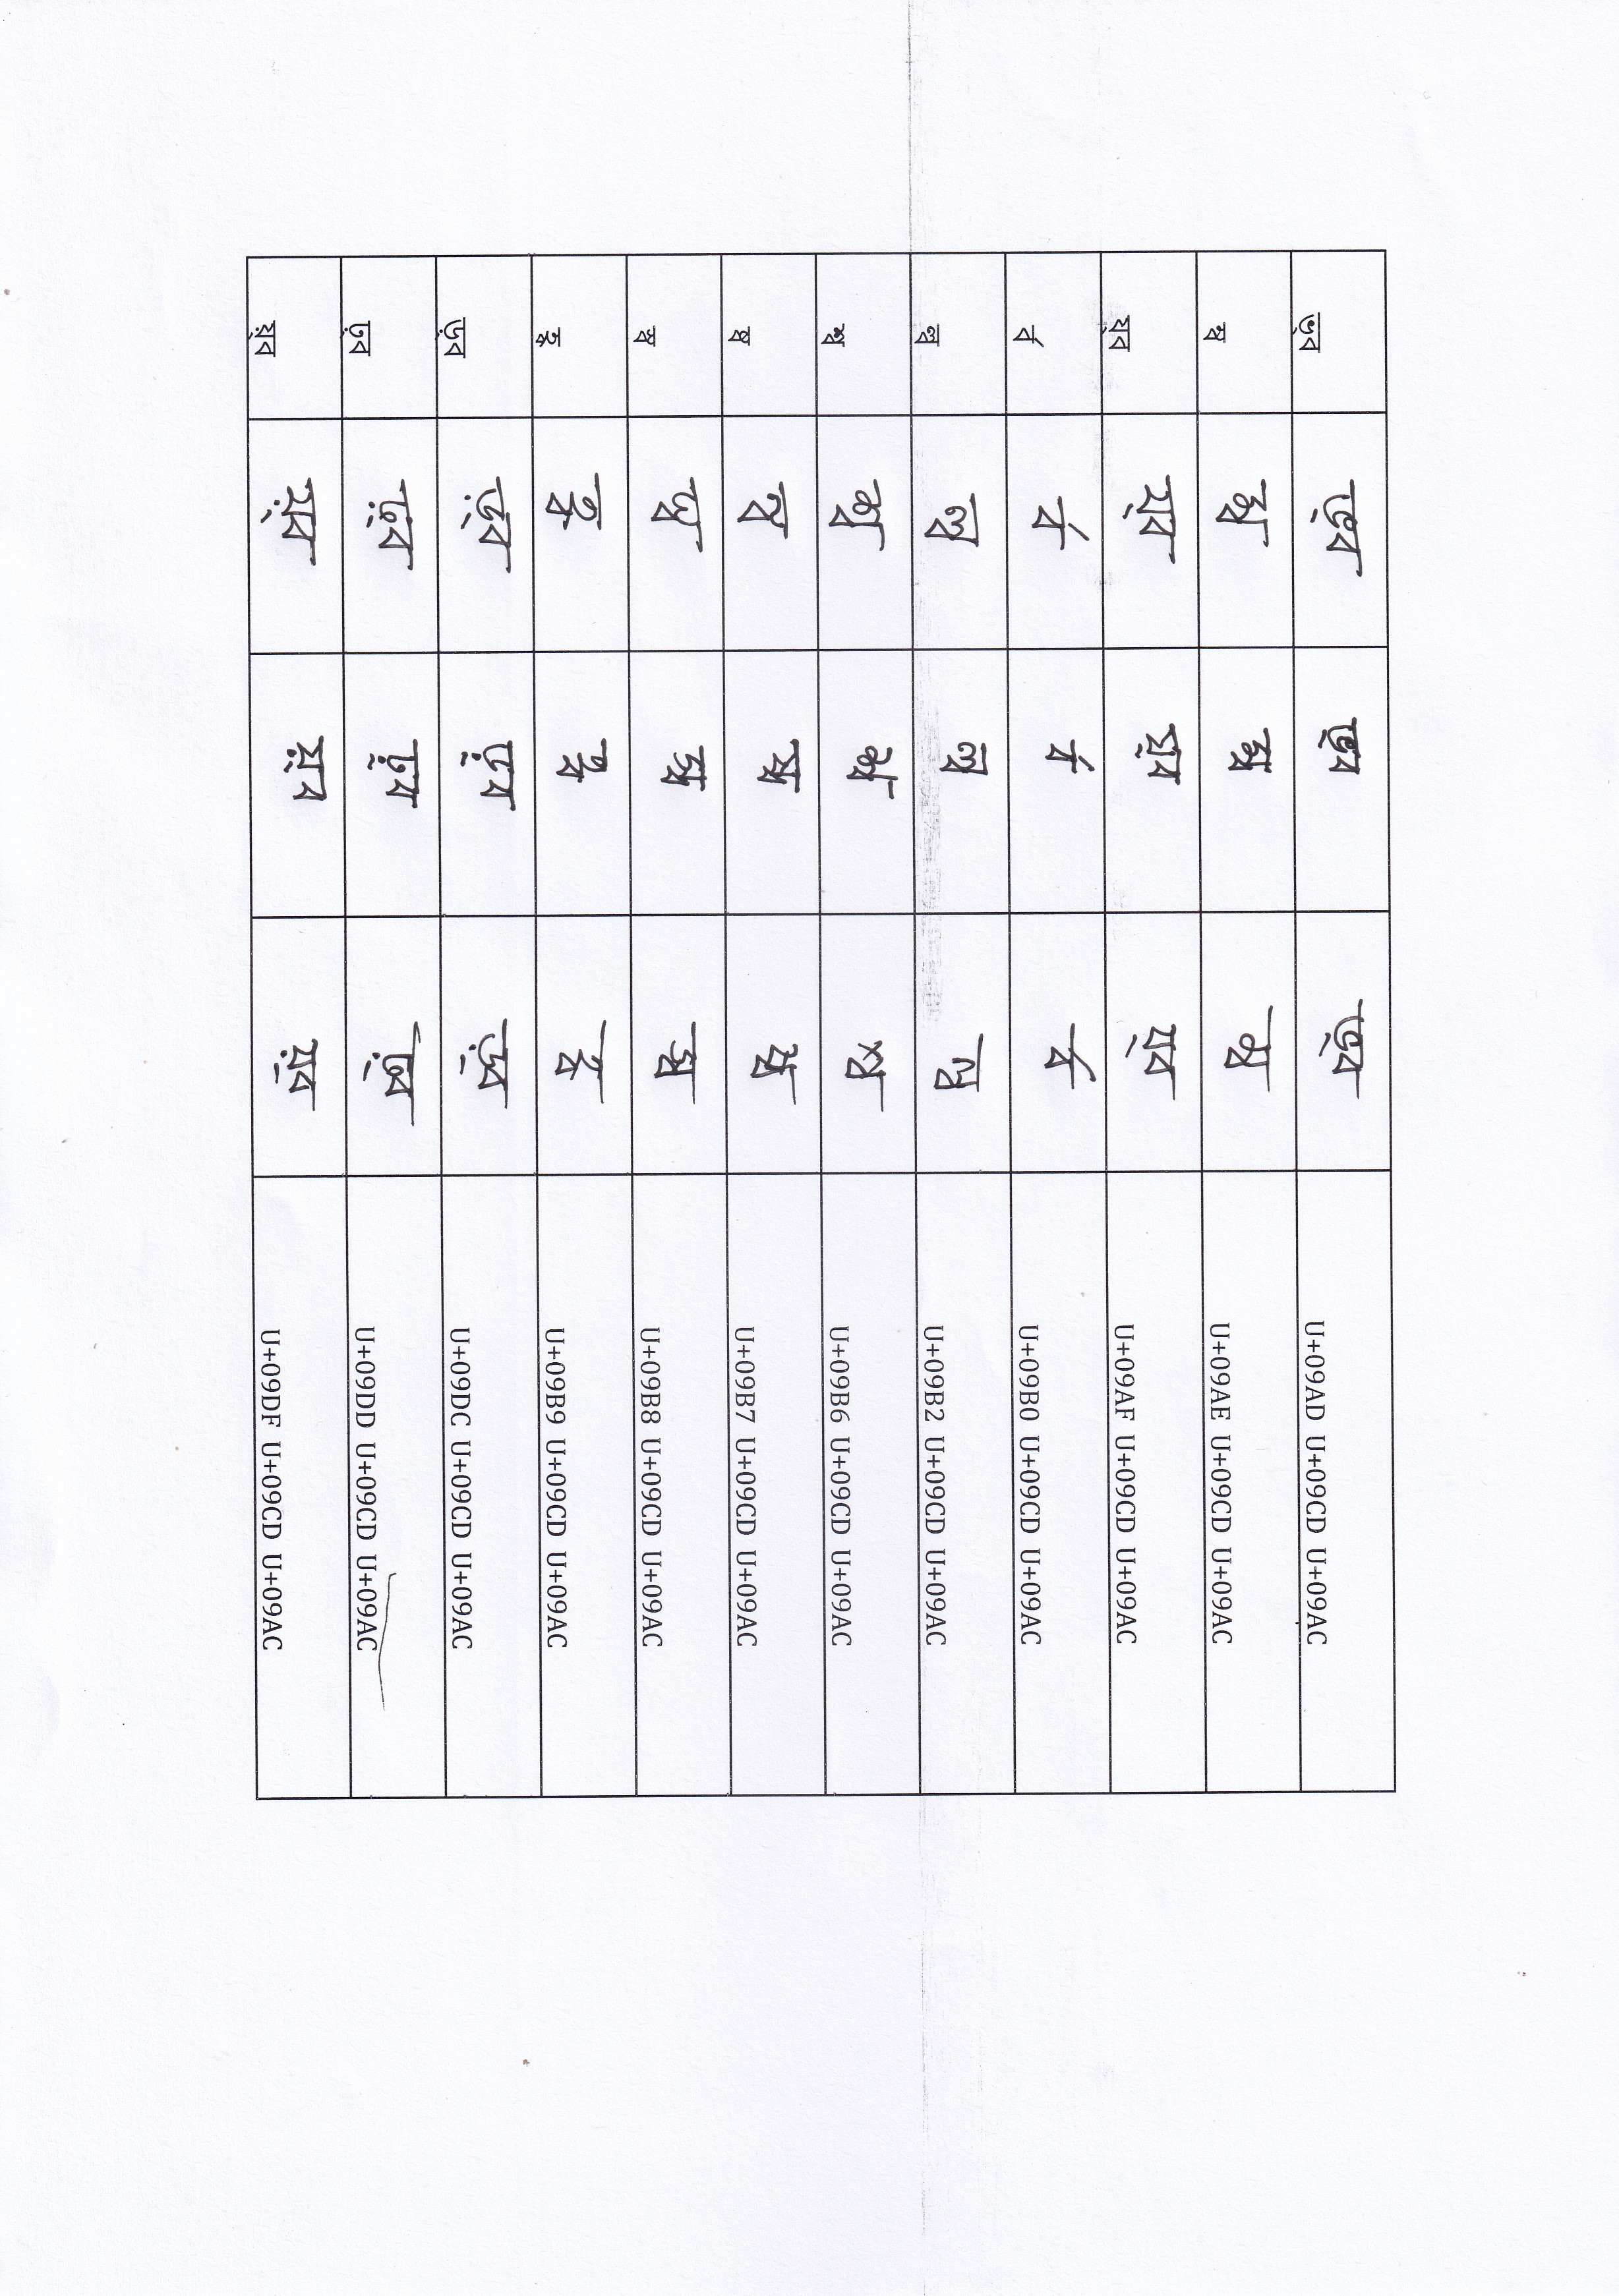 ভ্ব ভ্ব ভ্ব ভ্ব U+09AD U+09CD U+09AC
ম্ব ম্ব ম্ব ম্ব U+09AE U+09CD U+09AC
য্ব য্ব য্ব য্ব U+09AF U+09CD U+09AC
র্ব র্ব র্ব র্ব U+09B0 U+09CD U+09AC
ল্ব ল্ব ল্ব ল্ব U+09B2 U+09CD U+09AC
শ্ব শ্ব শ্ব শ্ব U+09B6 U+09CD U+09AC
ষ্ব ষ্ব ষ্ব ষ্ব U+09B7 U+09CD U+09AC
স্ব স্ব স্ব স্ব U+09B8 U+09CD U+09AC
হ্ব হ্ব হ্ব হ্ব U+09B9 U+09CD U+09AC
ড়্ব ড়্ব ড়্ব ড়্ব U+09DC U+09CD U+09AC
ঢ়্ব ঢ়্ব ঢ়্ব ঢ়্ব U+09DD U+09CD U+09AC
য়্ব য়্ব য়্ব য়্ব U+09DF U+09CD U+09AC